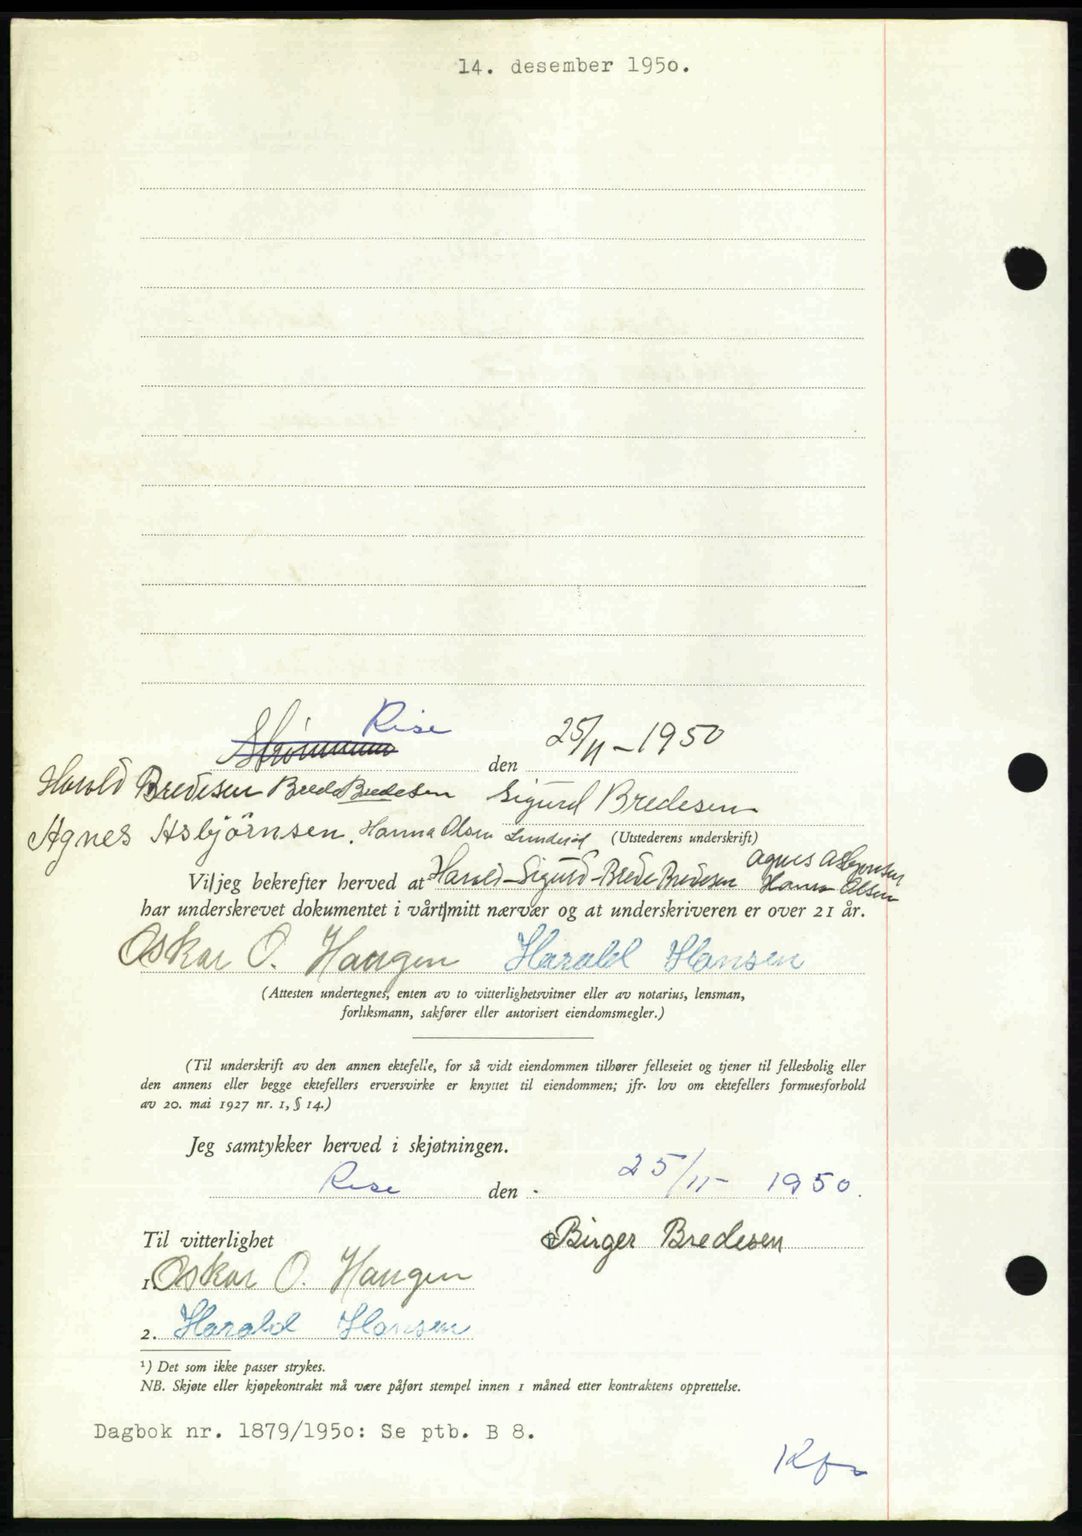 14. desember 1950.
Rise
Strømmen den 25/11 - 1950
Harald Bredesen Brede Bredesen Sigurd Bredesen
Agnes Asbjörnsen. Hanna Olsen Lunderød (Utstederens underskrift)
Agnes Asbjørnsen
Vi/jeg bekrefter herved at Harald - Sigurd - Brede Bredesen Hanna Olsen
har underskrevet dokumentet i vårt/mitt nærvær og at underskriveren er over 21 år.
Oskar O. Haugen Harald Hansen
(Attesten undertegnes, enten av to vitterlighetsvitner eller av notarius, lensman,
forliksmann, sakfører eller autorisert eiendomsmegler.)
(Til underskrift av den annen ektefelle, for så vidt eiendommen tilhører felleseiet og tjener til fellesbolig eller
den annens eller begge ektefellers erversvirke er knyttet til eiendommen; jfr. lov om ektefellers formuesforhold
av 20. mai 1927 nr. 1, § 14.)
Jeg samtykker herved i skjøtningen.
Rise den 25/11 - 1950.
Til vitterlighet Birger Bredesen
1. Oskar O. Haugen
2. Harald Hansen
¹) Det som ikke passer strykes.
NB. Skjøte eller kjøpekontrakt må være påført stempel innen 1 måned etter kontraktens opprettelse.
Dagbok nr. 1879/1950: Se ptb. B 8.